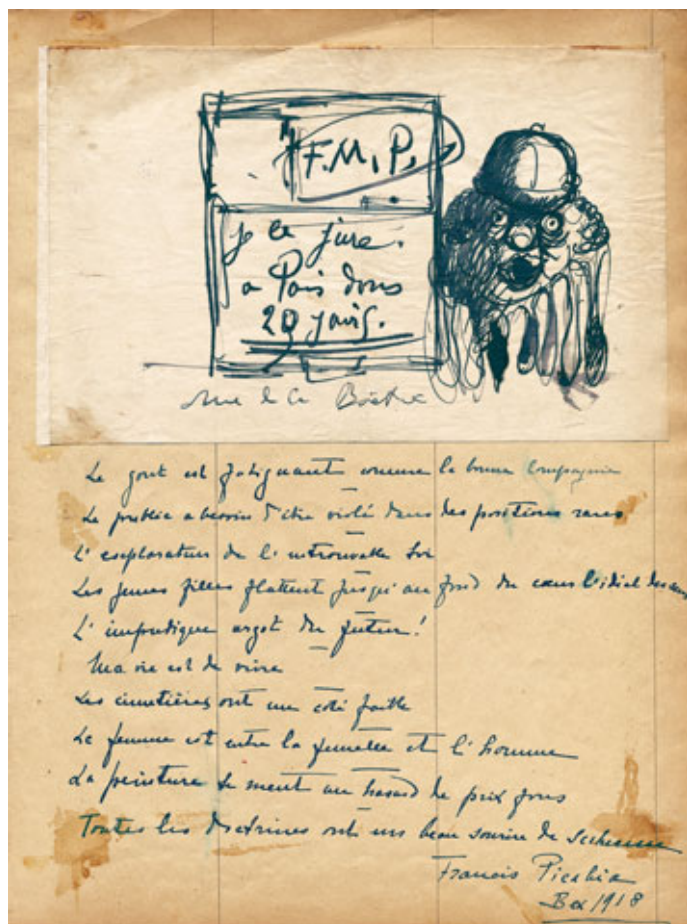 F.M.P.
je le jure.
a Paris dans
20 jours.
rue de la Boétie
Le gout est fatiguant comme la bonne Compagnie
Le public a besoin d'être violé dans des positions rares
L'explorateur de l'introuvable Soi
Les jeunes filles flattent jusqu'au fond du cœur l'idéal des
L'impudique argot du futur!
Ma vie est de vivre
Les cimetières ont un coté faible
La femme est entre la femelle et l'homme
La peinture se ment au hasard de prix fous
Toutes les doctrines ont un beau sourire de
Francis Picabia
Bex 1918